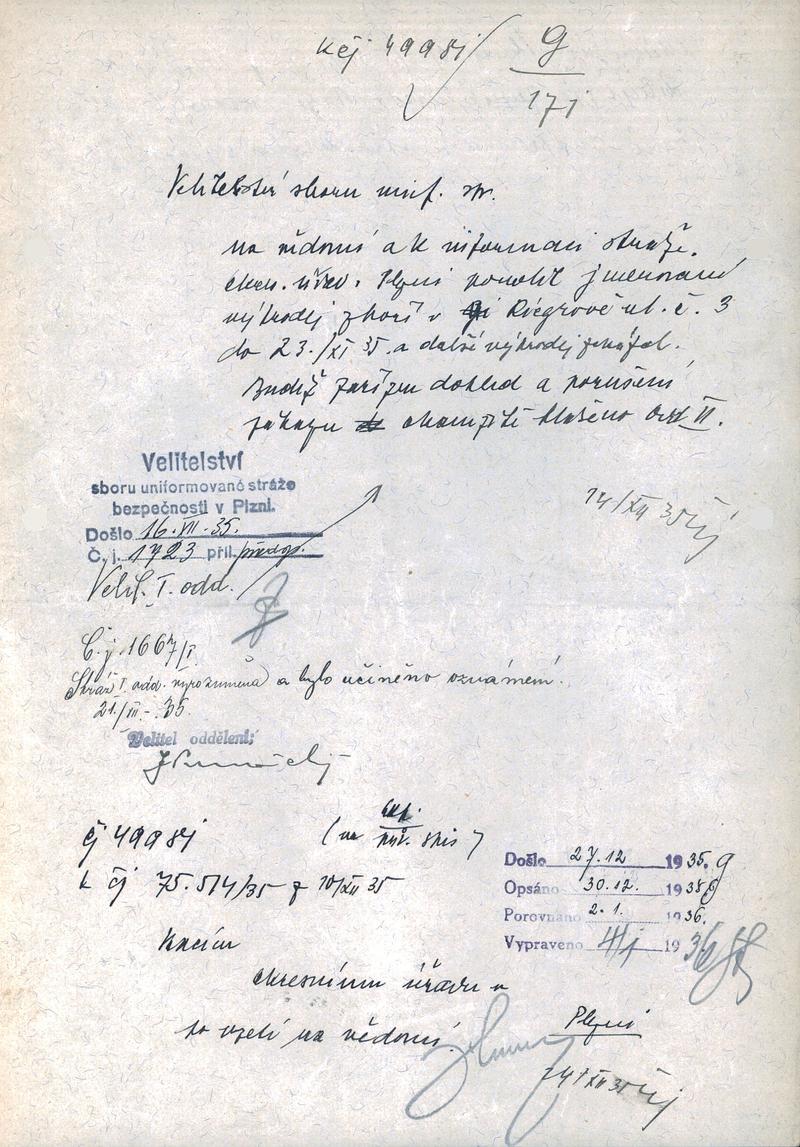 K čj 4998j
9
171
Velitelství sboru unif. str.
na vědomí a k informaci stráže.
okres. úřad. Plzni povolil jmenované
výprodej zboží v Riegrově ul. č. 3
do 23./XI 35. a další výprodej zakázal.
Budiž zařízen dohled a porušení
zákazu okamžitě hlášeno odd II.
14/XII 35
Velitelství
sboru uniformované stráže
bezpečnosti v Plzni.
Došlo 16.XII.35.
Č. j. 1723 příl. předp.
Velit. I. odd.
Č.j. 1667/I
Stráž I. odd. vyrozuměna a bylo učiněno oznámení.
21./XII - 35
Velitel oddělení:
čj 4998j
(na pův. spis)
k čj 75.514/35 z 10/XII 35
Vracím
okresnímu úřadu v
Plzni
po vzetí na vědomí.
14/XII 35
Došlo 27.12 1935.
Opsáno 30.12. 1935
Porovnáno 2.1. 1936.
Vypraveno 4/1 1936